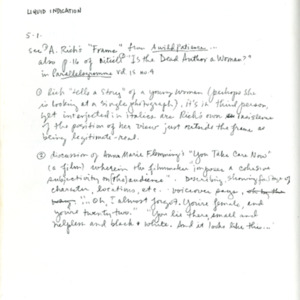 LIQUID INDICATION
5-1.
see "A. Rich's "Frame" from A Wild Patience...
also p. 16 of "Is the Dead Author a Woman?"
in Parallelogramme vol 15 no. 4
① Rich "tells a story" of a young woman (perhaps she
is looking at a single photograph), it's in third person,
yet interjected in italics are Rich's own insistence
of the position of her view just outside the frame as
being legitimate - real.
② discussion of Anna Marie Flemming's "You Take Care Now"
(a film) wherein the filmmaker "imposes a cohesive
subjectivity on (the) audience". Describing, showing footage of
character, locations, etc. voiceover says,
"... Oh, I almost forgot. You're female, and
you're twenty-two." "You lie there, small and
helpless and black & white. And it looks like this..."